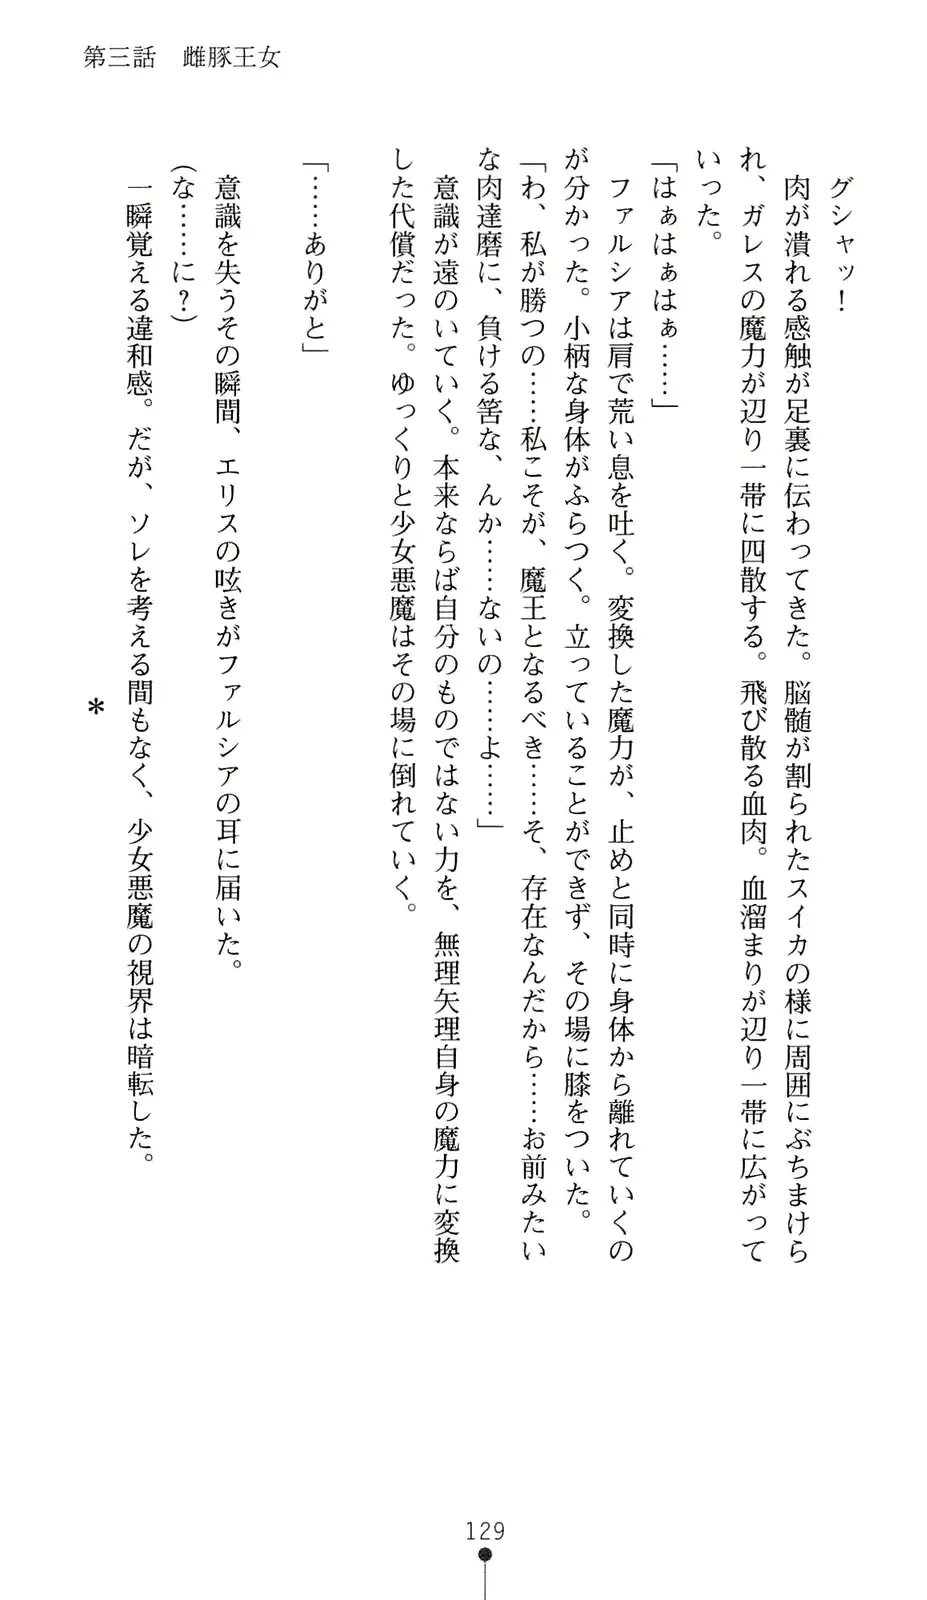 第三話　雌豚王女
グシャッ！
肉が潰れる感触が足裏に伝わってきた。脳髄が割られたスイカの様に周囲にぶちまけら
れ、ガレスの魔力が辺り一帯に四散する。飛び散る血肉。血溜まりが辺り一帯に広がって
いった。
「はぁはぁはぁ……」
ファルシアは肩で荒い息を吐く。変換した魔力が、止めと同時に身体から離れていくの
が分かった。小柄な身体がふらつく。立っていることができず、その場に膝をついた。
「わ、私が勝つの……私こそが、魔王となるべき……そ、存在なんだから……お前みたい
な肉達磨に、負ける筈な、んか……ないの……よ……」
意識が遠のいていく。本来ならば自分のものではない力を、無理矢理自身の魔力に変換
した代償だった。ゆっくりと少女悪魔はその場に倒れていく。
「……ありがと」
意識を失うその瞬間、エリスの呟きがファルシアの耳に届いた。
（な……に？）
一瞬覚える違和感。だが、ソレを考える間もなく、少女悪魔の視界は暗転した。
＊
129